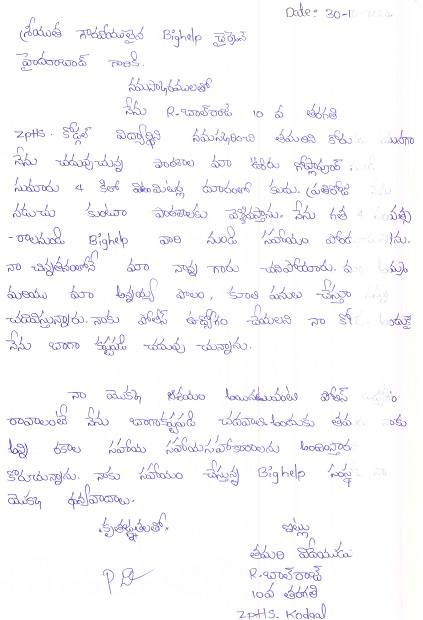 Date: 30-10-
శ్రీయుత గౌరవనీయులైన Bighelp డైరెక్టర్
హైదరాబాద్ గారికి.
నమస్కారములతో
నేను R-బాల్‌రాజ్ 10 వ తరగతి
ZPHS. కోడ్గల్ విద్యార్థిని నమస్కరించి తమరిని కోరు
నేను చదువుచున్న పాఠశాల మా ఊరు
సుమారు 4 కిలో మీటర్ల దూరంలో కలదు. ప్రతిరోజు
నడుచు కుంటూ పాఠశాలకు వెళ్లివస్తాను. నేను గత 4
-రాలనుండి Bighelp వారి నుండి సహాయం
నా చిన్నతనంలోనే మా నాన్న గారు చనిపోయారు. మా అమ్మ
మరియు మా అన్నయ్య పొలం, కూలి పనులు చేస్తూ
చదివిస్తున్నారు. నాకు పోలీస్ ఉద్యోగం చేయాలని నా
నేను బాగా కష్టపడి చదువు చున్నాను.
నా యొక్క ధ్యేయం అయినటువంటి పోలీస్
రావాలంటే నేను బాగాకష్టపడి చదవాలి.అందుకు నాకు
అన్ని రకాల సహాయ సహాయసహకారాలను
కోరుచున్నాను. నాకు సహాయం చేస్తున్న Bighelp సంస్థ నా
యొక్క ధన్యవాదాలు.
కృతజ్ఞతలతో. ఇట్లు
తమరి విధేయుడు
R-బాల్‌రాజ్
10వ తరగతి
ZPHS- Kodgal